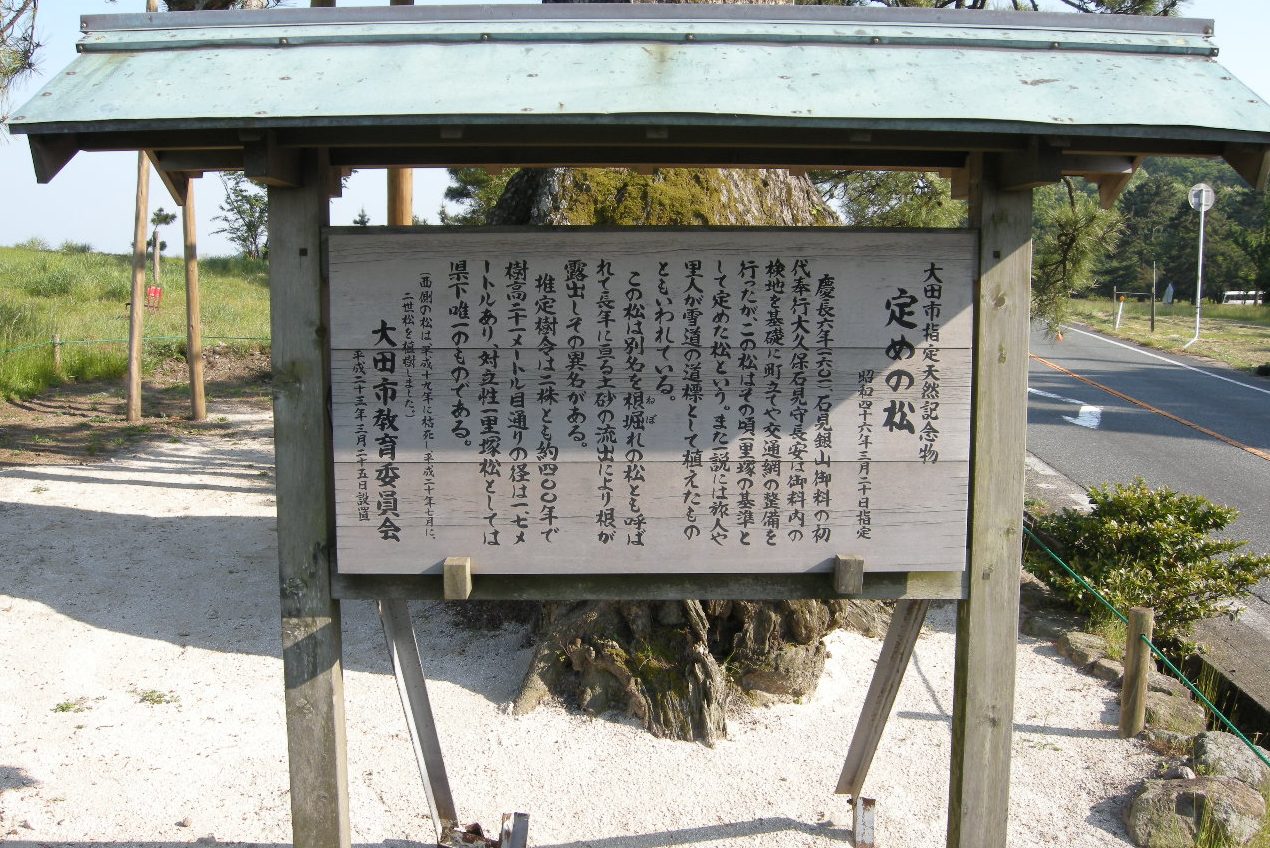 大田市指定天然記念物
定めの松
昭和四十六年三月二十日指定
慶長六年(一六〇一)石見銀山御料の初
代奉行大久保石見守長安は御料内の
検地を基礎に町立てや交通網の整備を
行ったが、この松はその頃一里塚の基準と
して定めた松という。また一説には旅人や
里人が雪道の道標として植えたもの
ともいわれている。
この松は別名を根堀れの松とも呼ば
ねぼ
れて長年に亘る土砂の流出により根が
露出しその異名がある。
推定樹令は二株とも約四〇〇年で
樹高二十一メートル目通りの径は一・七メ
ートルあり、対立性一里塚松としては
県下唯一のものである。
(西側の松は平成十九年に枯死し平成二十年七月に、
二世松を植樹しました。)
大田市教育委員会
平成二十三年三月二十五日設置